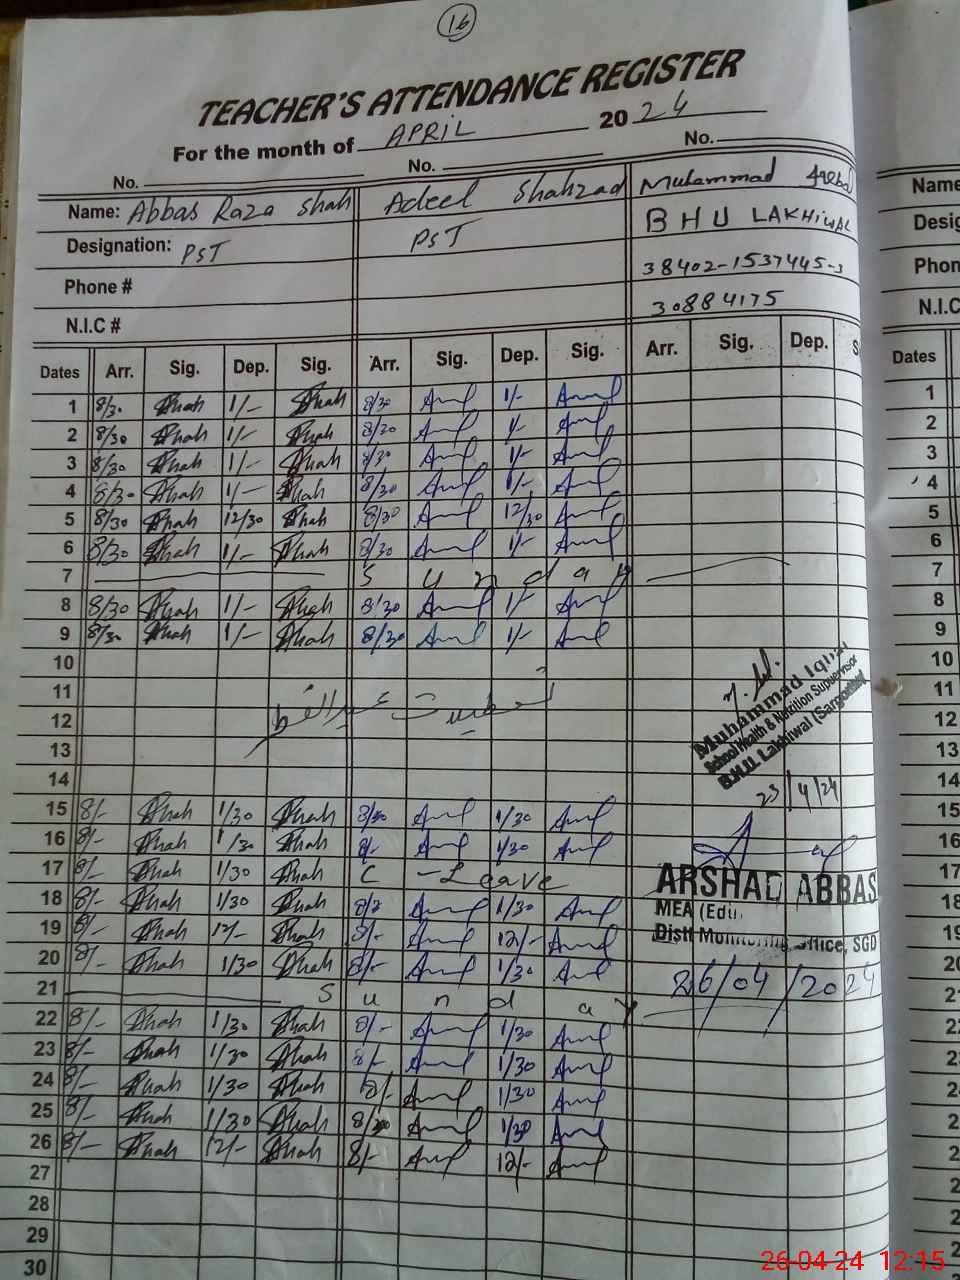 16
TEACHER'S ATTENDANCE REGISTER
For the month of APRIL 2024
No. No. No.
Name: Abbas Raza Shah Adeel Shahzad Muhammad
Designation: PST PST BHU LAKHIWAL
Phone # 38402-1537445-3
N.I.C # 30884175
Dates Arr. Sig. Dep. Sig. Arr. Sig. Dep. Sig. Arr. Sig. Dep. S
1 8/30 Shah 1/- Shah 8/30 1/-
2 8/30 Shah 1/- Shah 8/30 1/-
3 8/30 Shah 1/- Shah 8/30 1/-
4 8/30 Shah 1/- Shah 8/30 1/-
5 8/30 Shah 12/30 Shah 8/30 12/30
6 8/30 Shah 1/- Shah 8/30 1/-
7 Sunday
8 8/30 Shah 1/- Shah 8/30 1/-
9 8/30 Shah 1/- Shah 8/30 1/-
10
11
تعطیلات عیدالفطر
12
13
14
Muhammad Iqbal
School Health & Nutrition Supervisor
B.H.U Lakhiwal (Sargodha)
23/4/24
15 8/- Shah 1/30 Shah 1/30
16 8/- Shah 1/30 Shah 8/- 1/30
17 8/- Shah 1/30 Shah C-Leave
18 8/- Shah 1/30 Shah 1/30
19 8/- Shah 12/- Shah 8/- 12/-
20 8/- Shah 1/30 Shah 8/- 1/30
21 Sunday
ARSHAD ABBAS
MEA (Edu.
Distt Monitoring Office, SGD
26/04/2024
22 8/- Shah 1/30 Shah 8/- 1/30
23 8/- Shah 1/30 Shah 8/- 1/30
24 8/- Shah 1/30 Shah 8/- 1/30
25 8/- Shah 1/30 Shah 1/30
26 8/- Shah 12/- Shah 8/- 12/-
27
28
29
30
Name
Desig
Phon
N.I.C
Dates
1
2
3
4
5
6
7
8
9
10
11
12
13
14
15
16
17
18
26-04-24 12:15